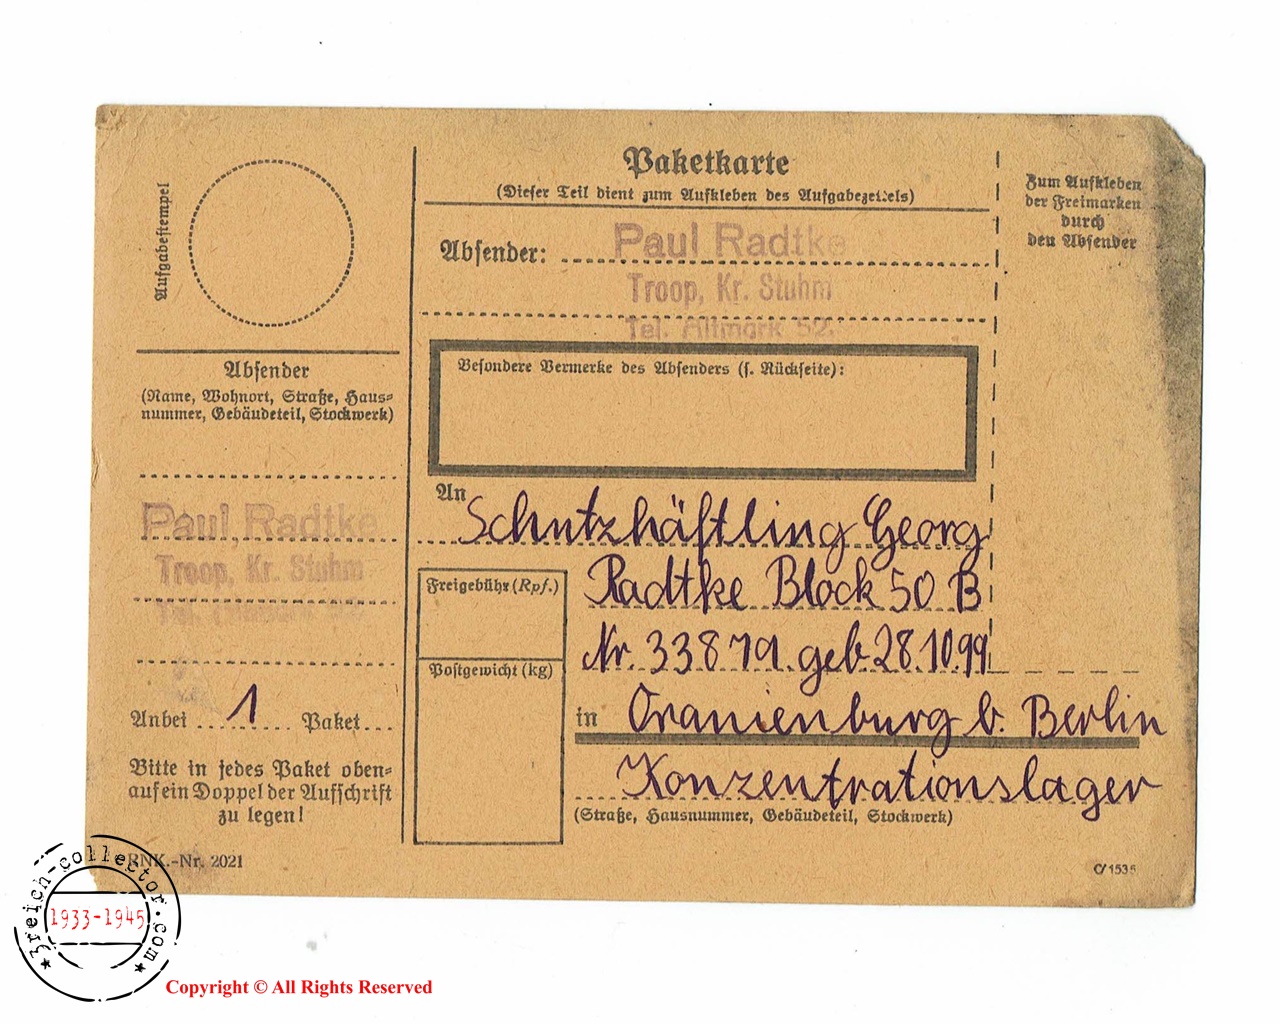 Aufgabestempel
Absender
(Name, Wohnort, Straße, Haus-
nummer, Gebäudeteil, Stockwerk)
Paul Radtke
Troop, Kr. Stuhm
Tel.
Anbei 1 Paket
Bitte in jedes Paket oben-
auf ein Doppel der Aufschrift
zu legen!
RNK.-Nr. 2021
Paketkarte
(Dieser Teil dient zum Aufkleben des Aufgabezettels)
Absender: Paul Radtke
Troop, Kr. Stuhm
Tel. Altmark 52.
Besondere Vermerke des Absenders (s. Rückseite):
An Schutzhäftling Georg
Radtke Block 50 B
Nr. 33879 geb 28.10.99
in Oranienburg b. Berlin
Konzentrationslager
(Straße, Hausnummer, Gebäudeteil, Stockwerk)
Freigebühr (Rpf.)
Postgewicht (kg)
Zum Aufkleben
der Freimarken
durch
den Absender
C/1535
3reich-collector.com
1933-1945
Copyright © All Rights Reserved